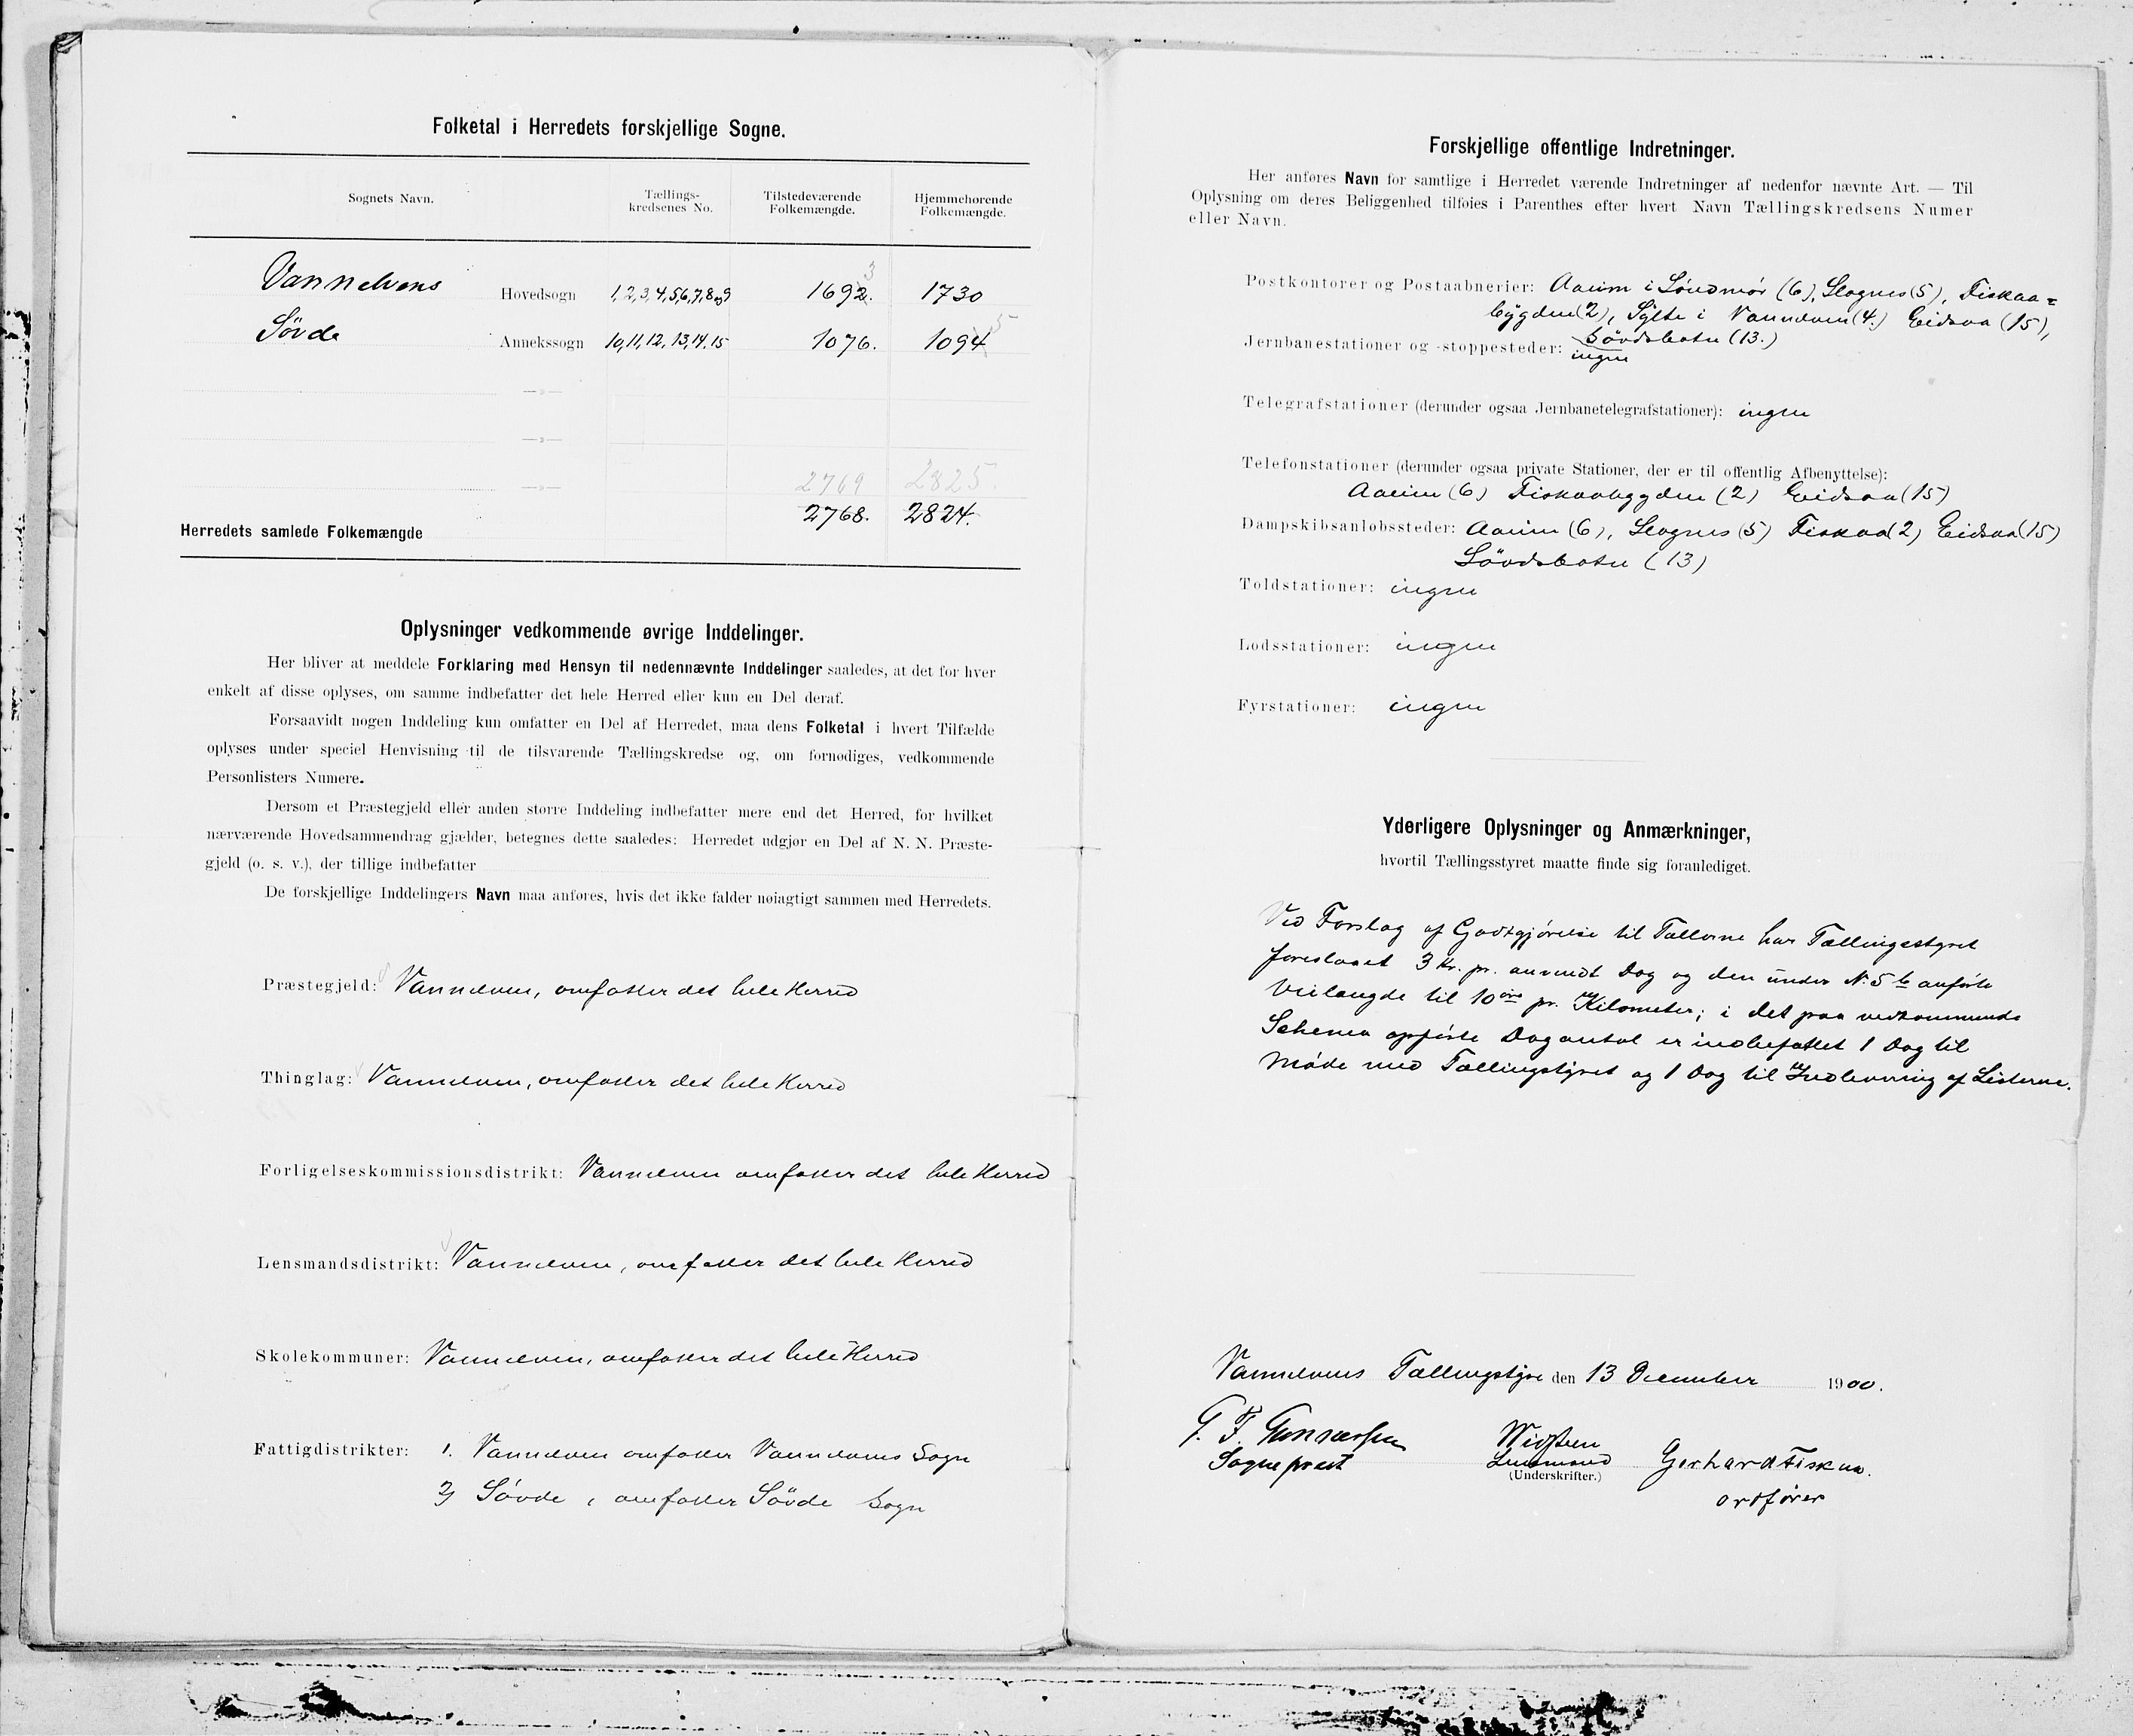 Folketal i Herredets forskjellige Sogne.
Sognets Navn. Tællings-kredsenes No. Tilstedeværende Folkemængde. Hjemmehørende Folkemængde.
Vannelvens Hovedsogn 1,2,3,4,5,6,7,8 og 9 1692. 3 1730
Søvde Annekssogn 10,11,12,13,14,15 1076. 1094 5
—»—
—»—
—»— 2769 2825.
Herredets samlede Folkemængde 2768. 2824.
Oplysninger vedkommende øvrige Inddelinger.
Her bliver at meddele Forklaring med Hensyn til nedennævnte Inddelinger saaledes, at det for hver
enkelt af disse oplyses, om samme indbefatter det hele Herred eller kun en Del deraf.
Forsaavidt nogen Inddeling kun omfatter en Del af Herredet, maa dens Folketal i hvert Tilfælde
oplyses under speciel Henvisning til de tilsvarende Tællingskredse og, om fornødiges, vedkommende
Personlisters Numere.
Dersom et Præstegjeld eller anden større Inddeling indbefatter mere end det Herred, for hvilket
nærværende Hovedsammendrag gjælder, betegnes dette saaledes: Herredet udgjør en Del af N. N. Præste-
gjeld (o. s. v.), der tillige indbefatter
De forskjellige Inddelingers Navn maa anføres, hvis det ikke falder nøiagtigt sammen med Herredets.
Præstegjeld: Vannelven, omfatter det hele Herred
Thinglag: Vannelven, omfatter det hele Herred
Forligelseskommissionsdistrikt: Vannelven omfatter det hele Herred
Lensmandsdistrikt: Vannelven, omfatter det hele Herred
Skolekommuner: Vannelven, omfatter det hele Herred
Fattigdistrikter: 1. Vannelven omfatter Vannelvens Sogn
2) Søvde, omfatter Søvde Sogn
Forskjellige offentlige Indretninger.
Her anføres Navn for samtlige i Herredet værende Indretninger af nedenfor nævnte Art. — Til
Oplysning om deres Beliggenhed tilføies i Parenthes efter hvert Navn Tællingskredsens Numer
eller Navn.
Postkontorer og Postaabnerier: Aaeim i Søndmør (6), Slagnes (5), Fiskaa=
bygden (2), Sylte i Vannelven (4.) Eidsaa (15),
Søvdsbotn (13.)
Jernbanestationer og -stoppesteder: ingen
Telegrafstationer (derunder ogsaa Jernbanetelegrafstationer): ingen
Telefonstationer (derunder ogsaa private Stationer, der er til offentlig Afbenyttelse):
Aaeim (6) Fiskaabygden (2) Eidsaa (15)
Dampskibsanløbssteder: Aaeim (6), Slagnes (5) Fiskaa (2) Eidsaa (15)
Søvdsbotn (13)
Toldstationer: ingen
Lodsstationer: ingen
Fyrstationer: ingen
Yderligere Oplysninger og Anmærkninger,
hvortil Tællingsstyret maatte finde sig foranlediget.
Ved Forslag af Godtgjørelse til Tællerne har Tællingsstyret
foreslaaet 3 Kr. pr. anvendt Dag og den under N: 5 b anførte
Veilængde til 10 øre pr. Kilometer; i det paa vedkommende
Schema opførte Dagantal er indbefattet 1 Dag til
Møde med Tællingstyret og 1 Dag til Indlevering af Listerne.
Vannelvens Tællingstyre den 13 December 1900.
G. F. Gunnersen
Sogneprest
Lensmand
(Underskrifter.)
Gerhard Fiskaa.
ordfører